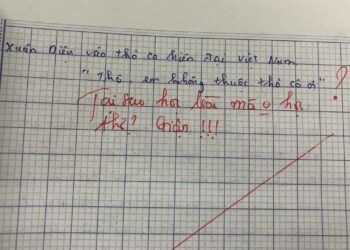 Xuân Diệu vào thơ ca hiện đại Việt Nam
" Thơ, em không thuộc thơ cô ơi"
?
Tại sao hơi
thở? Giận !!!